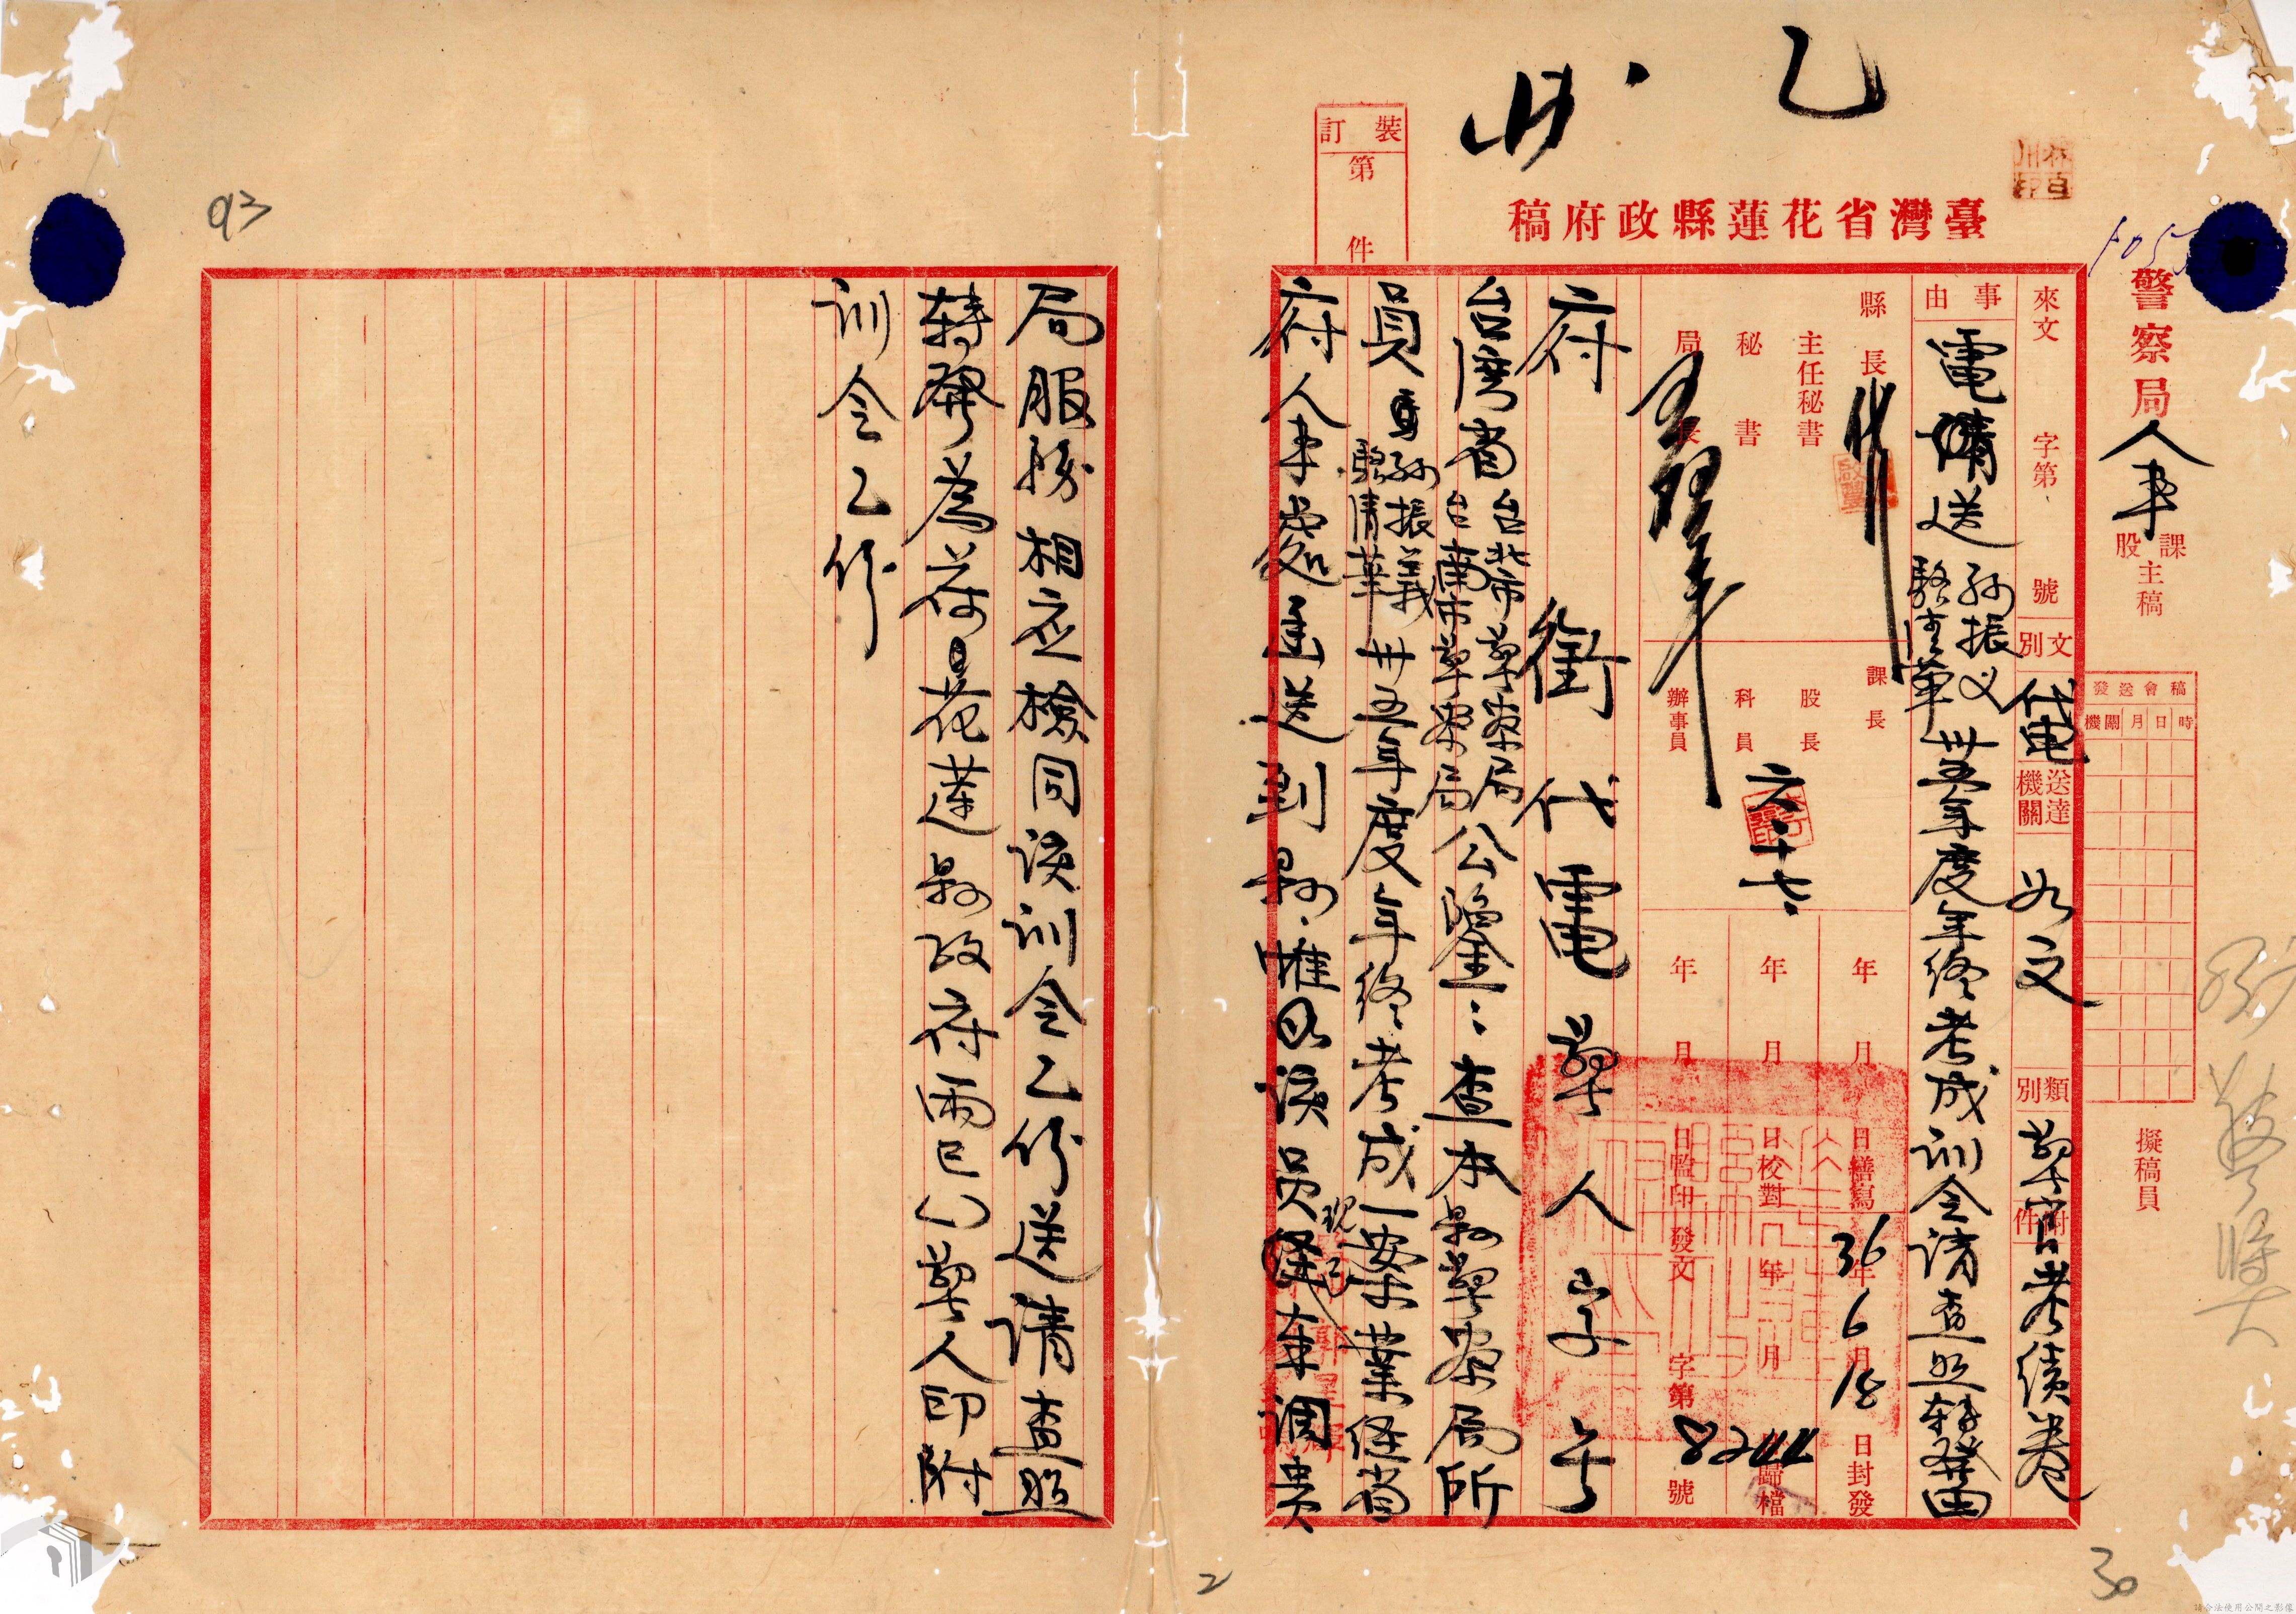 乙
臺灣省花蓮縣政府稿
裝訂
第 件
警察局人事課股主稿
擬稿員
稿會送發
時日月機關
來文 字第 號
文別 代電
送達機關 如文
類別 警官考績卷
附件
事由
電請送孫振义駱清華卅五年度年終考成訓令請查照轉發由
縣長
主任秘書
秘書
局長
課長
股長
科員
辦事員
六 十七
年 月 日繕寫
年 月 日校對
年 月 日監印
36年6月18日封發
年 月 日歸檔
發文 字第 號
府銜代電 警人字 号
台灣省台北市警察局台南市警察局公鑒：查本縣警察局所
員孫振義駱清華卅五年度年終考成一案業経省
府人事處函送到縣．惟以該員現已奉調貴
局服務相应檢同該訓令乙份送請查照
轉發為荷花蓮縣政府巳警人印附
訓令乙份
93
2
30